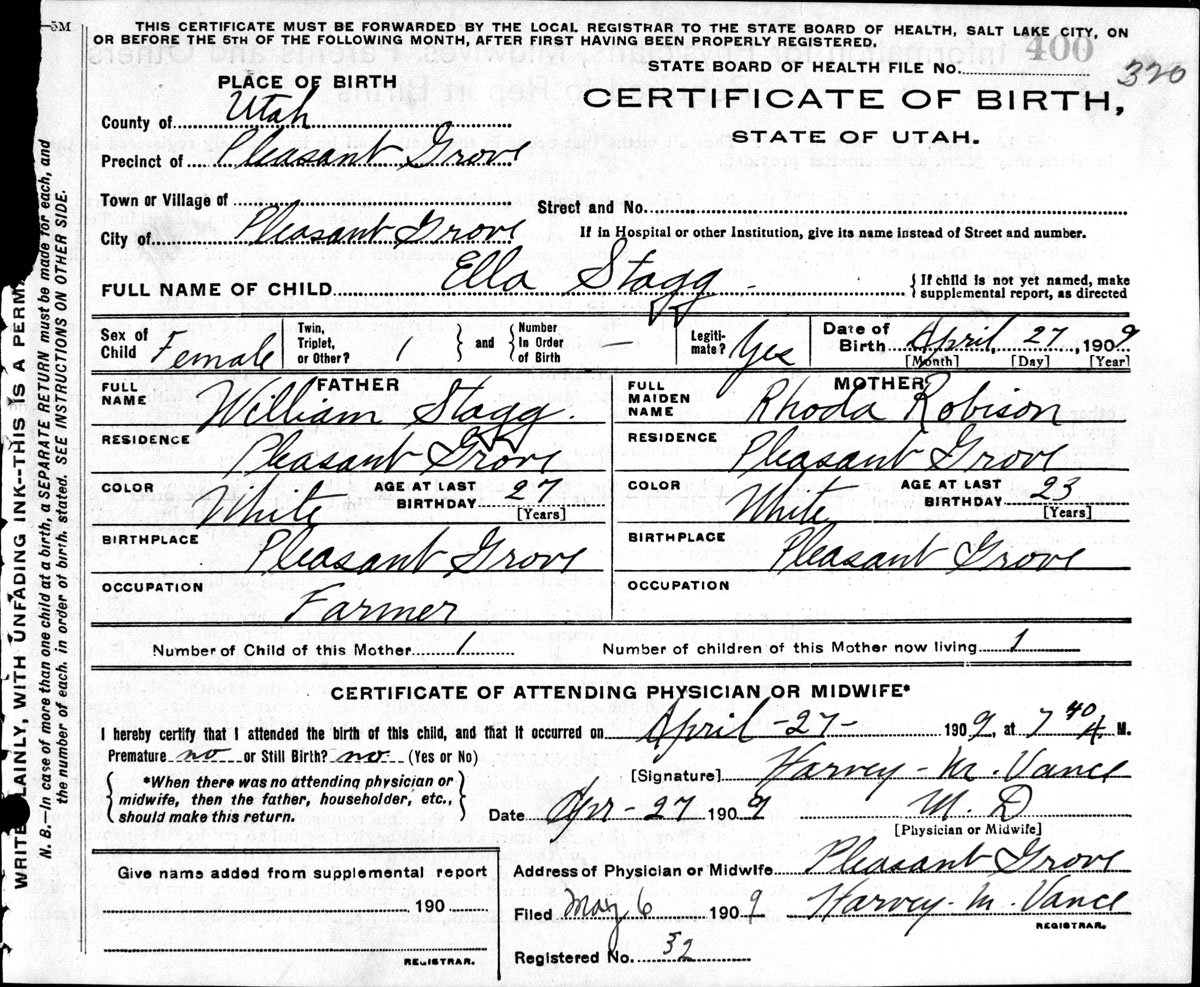 -5M
THIS CERTIFICATE MUST BE FORWARDED BY THE LOCAL REGISTRAR TO THE STATE BOARD OF HEALTH, SALT LAKE CITY, ON
OR BEFORE THE 5TH OF THE FOLLOWING MONTH, AFTER FIRST HAVING BEEN PROPERLY REGISTERED.
400
STATE BOARD OF HEALTH FILE No.
320
PLACE OF BIRTH
CERTIFICATE OF BIRTH,
STATE OF UTAH.
County of Utah
Precinct of Pleasant Grove
Town or Village of
Street and No.
City of Pleasant Grove
If in Hospital or other Institution, give its name instead of Street and number.
FULL NAME OF CHILD Ella Stagg
{If child is not yet named, make
supplemental report, as directed
Sex of Child Female
Twin, Triplet, or Other? 1 } and { Number In Order of Birth —
Legiti-mate? Yes
Date of Birth April 27, 1909
[Month] [Day] [Year]
FATHER
FULL NAME William Stagg.
MOTHER
FULL MAIDEN NAME Rhoda Robison
RESIDENCE Pleasant Grove
RESIDENCE Pleasant Grove
COLOR White AGE AT LAST BIRTHDAY 27 [Years]
COLOR White AGE AT LAST BIRTHDAY 23 [Years]
BIRTHPLACE Pleasant Grove
BIRTHPLACE Pleasant Grove
OCCUPATION Farmer
OCCUPATION
Number of Child of this Mother 1
Number of children of this Mother now living 1
CERTIFICATE OF ATTENDING PHYSICIAN OR MIDWIFE*
I hereby certify that I attended the birth of this child, and that it occurred on April -27- 1909, at 7 40 A. M.
Premature no or Still Birth? no. (Yes or No)
{ *When there was no attending physician or
midwife, then the father, householder, etc.,
should make this return. }
[Signature] Harvey - M. Vance
Date Apr - 27 1909 M. D
[Physician or Midwife]
Give name added from supplemental report
190
REGISTRAR.
Address of Physician or Midwife Pleasant Grove
Filed May 6 1909 Harvey. M. Vance
REGISTRAR.
Registered No. 52
WRITE PLAINLY, WITH UNFADING INK--THIS IS A PERMA
N. B.—In case of more than one child at a birth, a SEPARATE RETURN must be made for each, and
the number of each, in order of birth, stated. SEE INSTRUCTIONS ON OTHER SIDE.